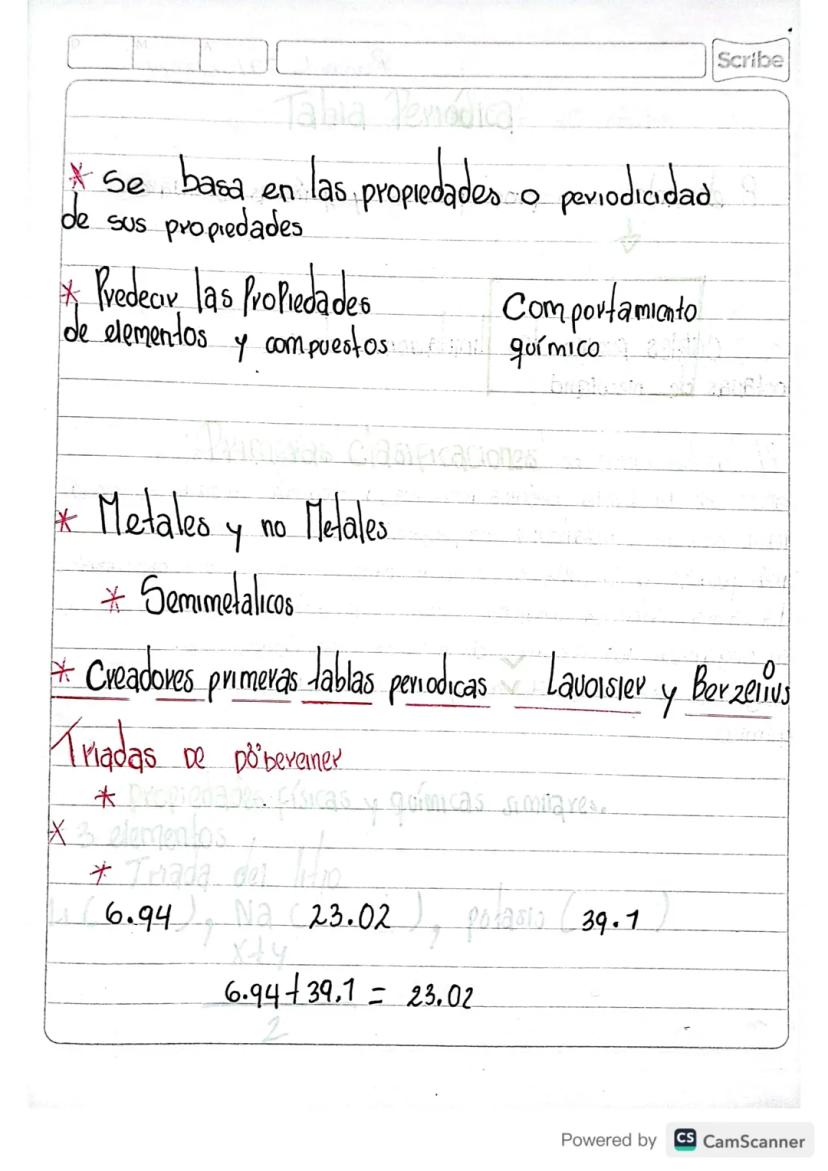 Scribe
Tabla Periódica
* Se basa en las propiedades o periodicidad
de sus propiedades
* Predecir las Propiedades
de elementos y compuestos
Comportamiento
químico
Primeras Clasificaciones
* Metales y no Metales
* Semimetalicos
* Creadores primeras tablas periodicas Lavoisier y Berzelius
Triadas De Döbereiner
* Propiedades físicas y químicas similares.
* 3 elementos
* Triada del litio
Li (6.94), Na (23.02), potasio (39.1)
x+y
6.94+39.1 = 23.02
2
Powered by CS CamScanner